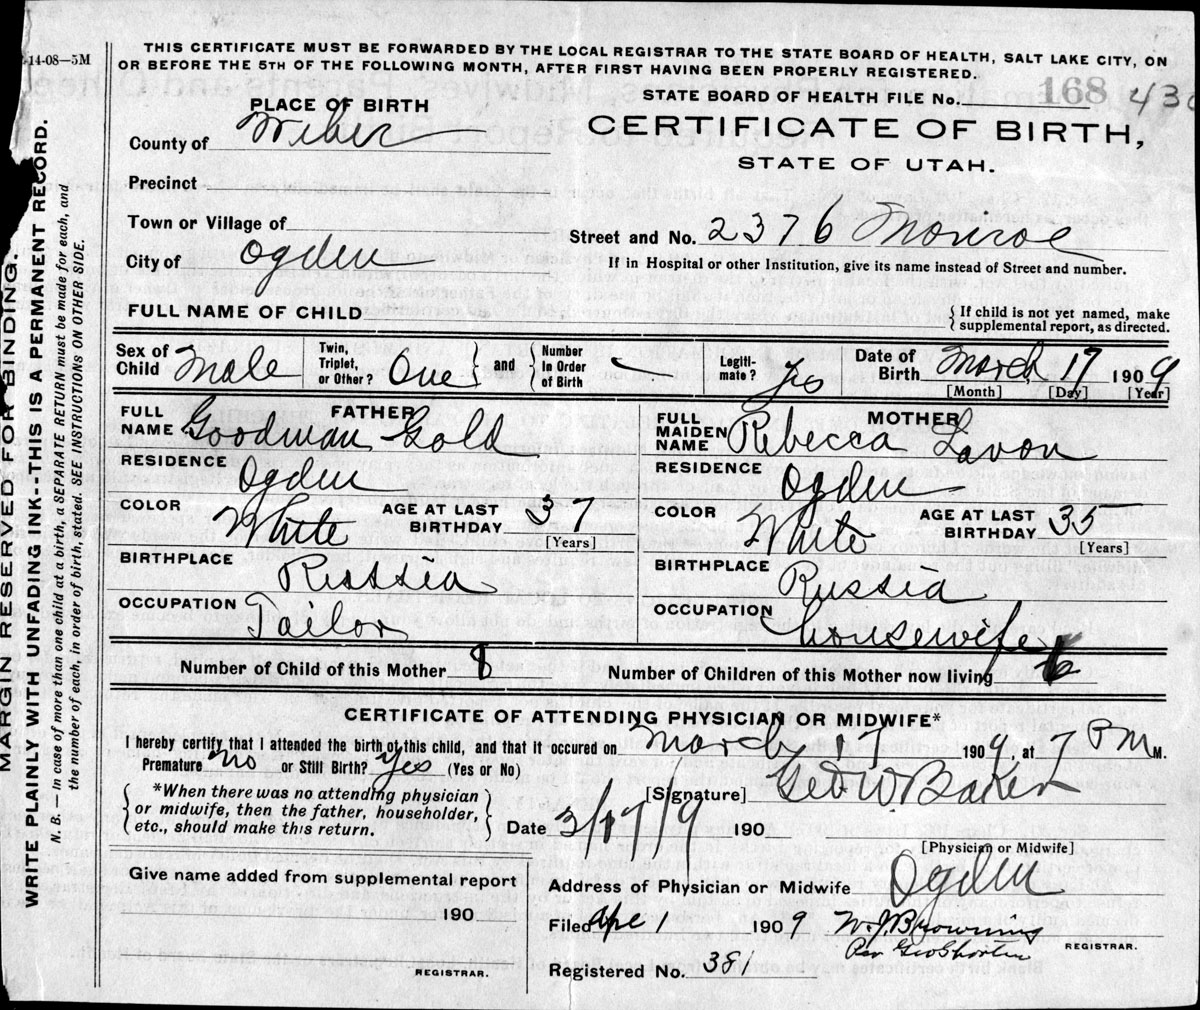 14-08—5M
THIS CERTIFICATE MUST BE FORWARDED BY THE LOCAL REGISTRAR TO THE STATE BOARD OF HEALTH, SALT LAKE CITY, ON
OR BEFORE THE 5TH OF THE FOLLOWING MONTH, AFTER FIRST HAVING BEEN PROPERLY REGISTERED.
STATE BOARD OF HEALTH FILE No. 168 430
PLACE OF BIRTH
CERTIFICATE OF BIRTH,
STATE OF UTAH.
County of Weber
Precinct
Town or Village of
Street and No. 2376 Monroe
City of Ogden
If in Hospital or other Institution, give its name instead of Street and number.
FULL NAME OF CHILD
{ If child is not yet named, make
supplemental report, as directed.
Sex of Child Male
Twin, Triplet, or Other? One } and { Number In Order of Birth
Legiti-mate? Yes
Date of Birth March 17 1909
[Month] [Day] [Year]
FATHER
FULL NAME Goodman Gold
RESIDENCE Ogden
COLOR White AGE AT LAST BIRTHDAY 37
[Years]
BIRTHPLACE Russia
OCCUPATION Tailor
MOTHER
FULL MAIDEN NAME Rebecca Lavon
RESIDENCE Ogden
COLOR White AGE AT LAST BIRTHDAY 35
[Years]
BIRTHPLACE Russia
OCCUPATION housewife
Number of Child of this Mother 8
Number of Children of this Mother now living
CERTIFICATE OF ATTENDING PHYSICIAN OR MIDWIFE*
I hereby certify that I attended the birth of this child, and that it occured on March 17 1909, at 7 PM M.
Premature No or Still Birth? Yes (Yes or No)
{ *When there was no attending physician
or midwife, then the father, householder,
etc., should make this return. }
[Signature] Geo W. Baker
Date 3/17/9 190
[Physician or Midwife]
Give name added from supplemental report
190
REGISTRAR.
Address of Physician or Midwife Ogden
Filed Apr 1 1909 W. J. Browning
REGISTRAR.
Per Geo Shorten
Registered No. 381
MARGIN RESERVED FOR BINDING.
WRITE PLAINLY WITH UNFADING INK--THIS IS A PERMANENT RECORD.
N. B. — In case of more than one child at a birth, a SEPARATE RETURN must be made for each, and
the number of each, in order of birth, stated. SEE INSTRUCTIONS ON OTHER SIDE.